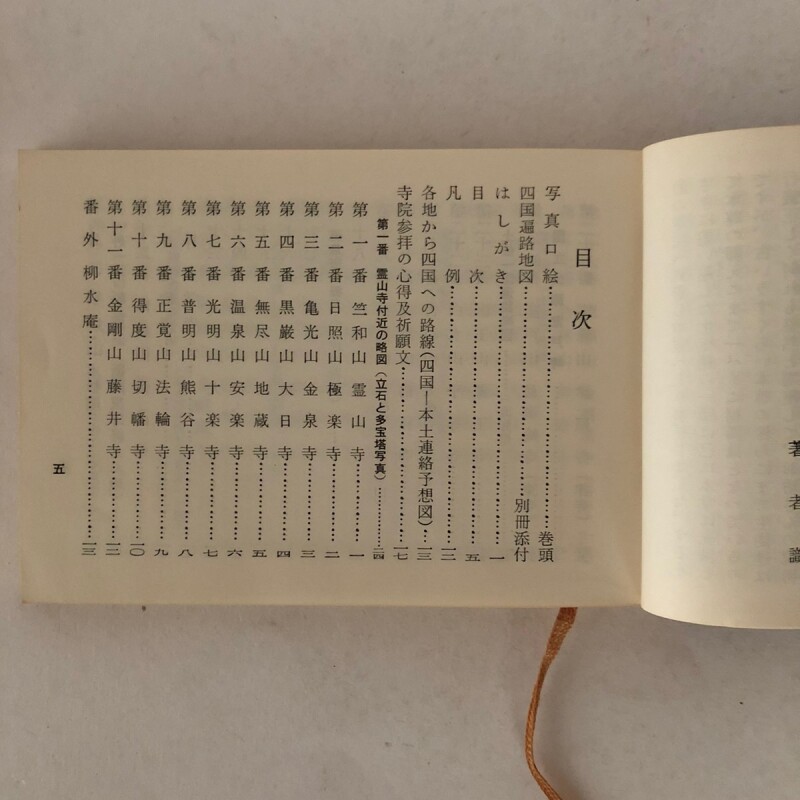 著者識
目次
写真口絵……巻頭
四国遍路地図……別冊添付
はしがき……一
目次……五
凡例……一二
各地から四国への路線(四国ー本土連絡予想図)……一三
寺院参拝の心得及祈願文……一七
第一番 霊山寺付近の略図(立石と多宝塔写真)……二四
第一番 竺和山 霊山寺……一
第二番 日照山 極楽寺……二
第三番 亀光山 金泉寺……三
第四番 黒巌山 大日寺……四
第五番 無尽山 地蔵寺……五
第六番 温泉山 安楽寺……六
第七番 光明山 十楽寺……七
第八番 普明山 熊谷寺……八
第九番 正覚山 法輪寺……九
第十番 得度山 切幡寺……一〇
第十一番 金剛山 藤井寺……一二
番外 柳水庵……一三
五